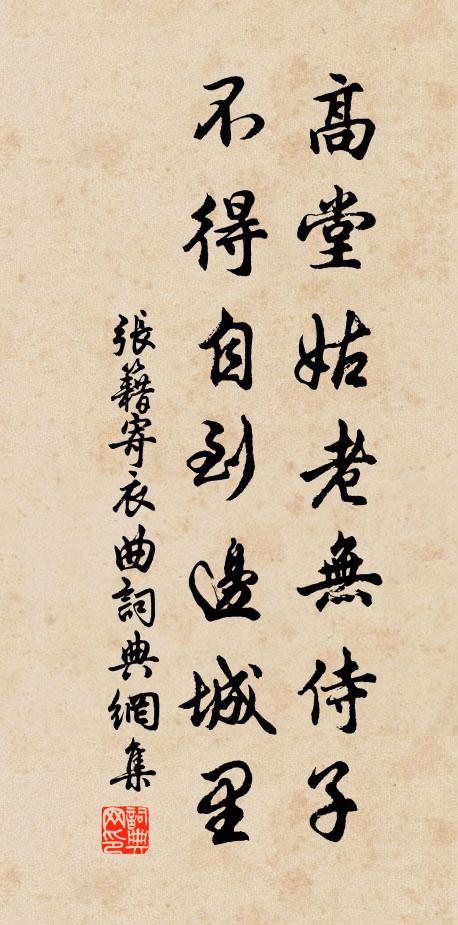 高堂姑老無侍子
不得自到邊城里
張籍寄衣曲詞典網集
詞典网印